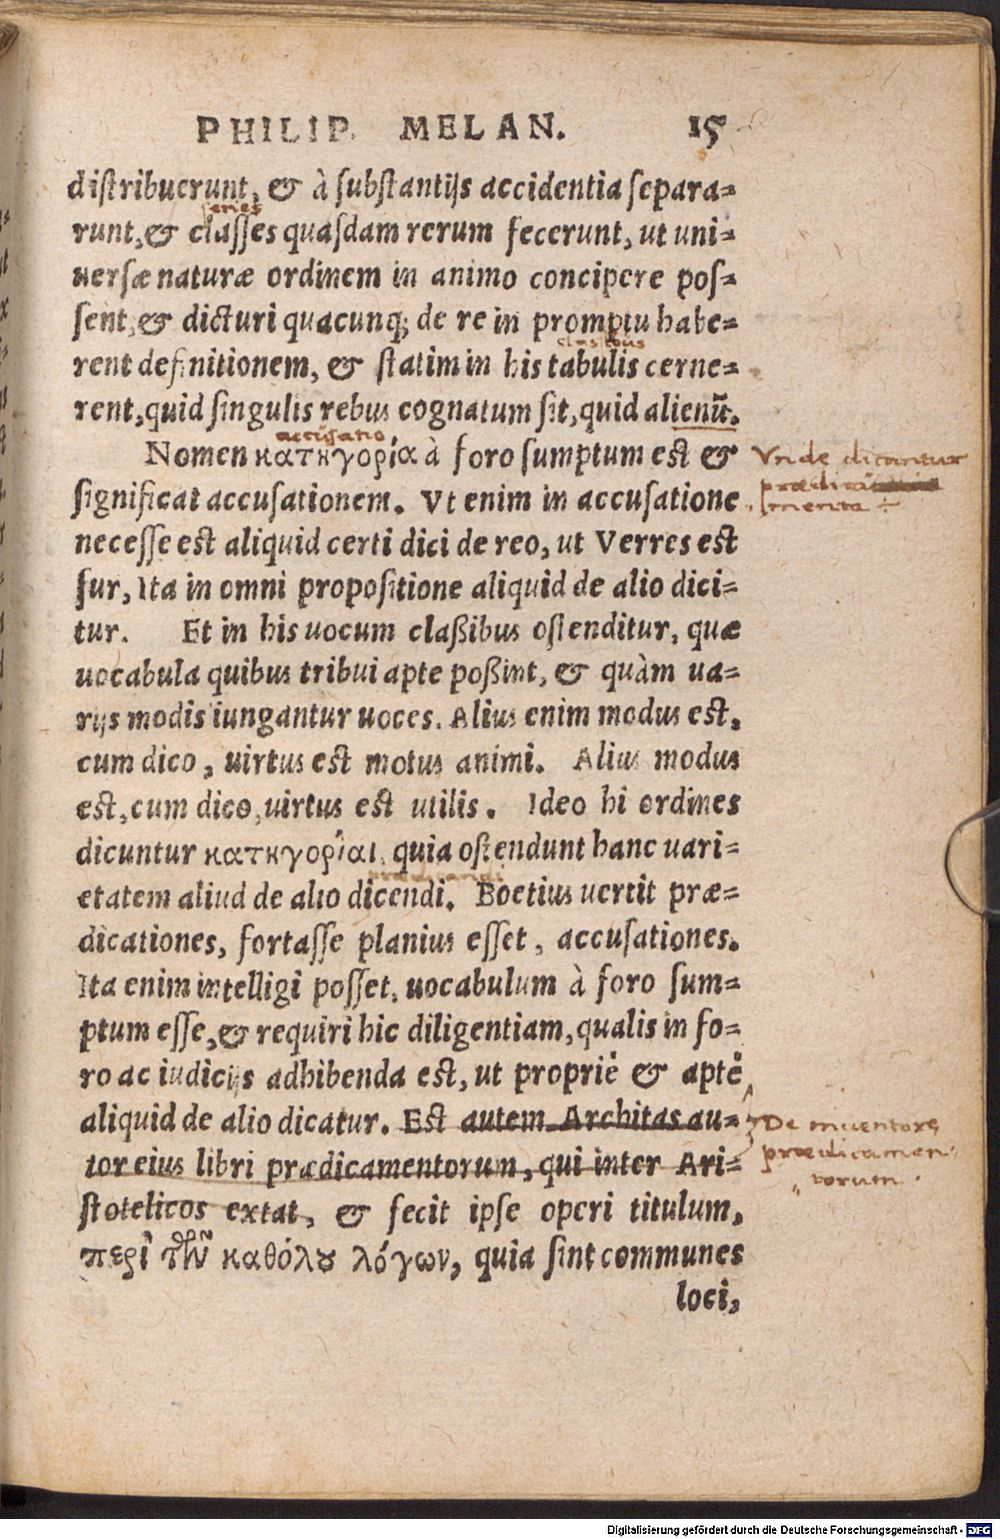 PHILIP. MELAN. 15
distribuerunt, & à substantijs accidentia separa=
series
runt, & classes quasdam rerum fecerunt, ut uni=
uersæ naturæ ordinem in animo concipere pos=
sent, & dicturi quacunq; de re in promptu habe=
classibus
rent definitionem, & statim in his tabulis cerne=
rent, quid singulis rebus cognatum sit, quid alienū.
accusatio
Nomen κατηγορία à foro sumptum est &
Vnde dicantur
significat accusationem. Vt enim in accusatione
prædica
menta ÷
necesse est aliquid certi dici de reo, ut Verres est
fur, Ita in omni propositione aliquid de alio dici=
tur. Et in his uocum claßibus ostenditur, quæ
uocabula quibus tribui apte poßint, & quàm ua=
rijs modis iungantur uoces. Alius enim modus est,
cum dico, uirtus est motus animi. Alius modus
est, cum dico, uirtus est utilis. Ideo hi ordines
dicuntur κατηγορίαι, quia ostendunt hanc uari=
prædicandi
etatem aliud de alio dicendi. Boetius uertit præ=
dicationes, fortasse planius esset, accusationes.
Ita enim intelligi posset, uocabulum à foro sum=
ptum esse, & requiri hic diligentiam, qualis in fo=
ro ac iudicijs adhibenda est, ut propriè & aptè
aliquid de alio dicatur. Est autem Architas au=
De inuentore
tor eius libri prædicamentorum, qui inter Ari=
prædicamen
torum.
stotelicos extat, & fecit ipse operi titulum,
περὶ τῶν καθόλου λόγων, quia sint communes
loci,
Digitalisierung gefördert durch die Deutsche Forschungsgemeinschaft - DFG